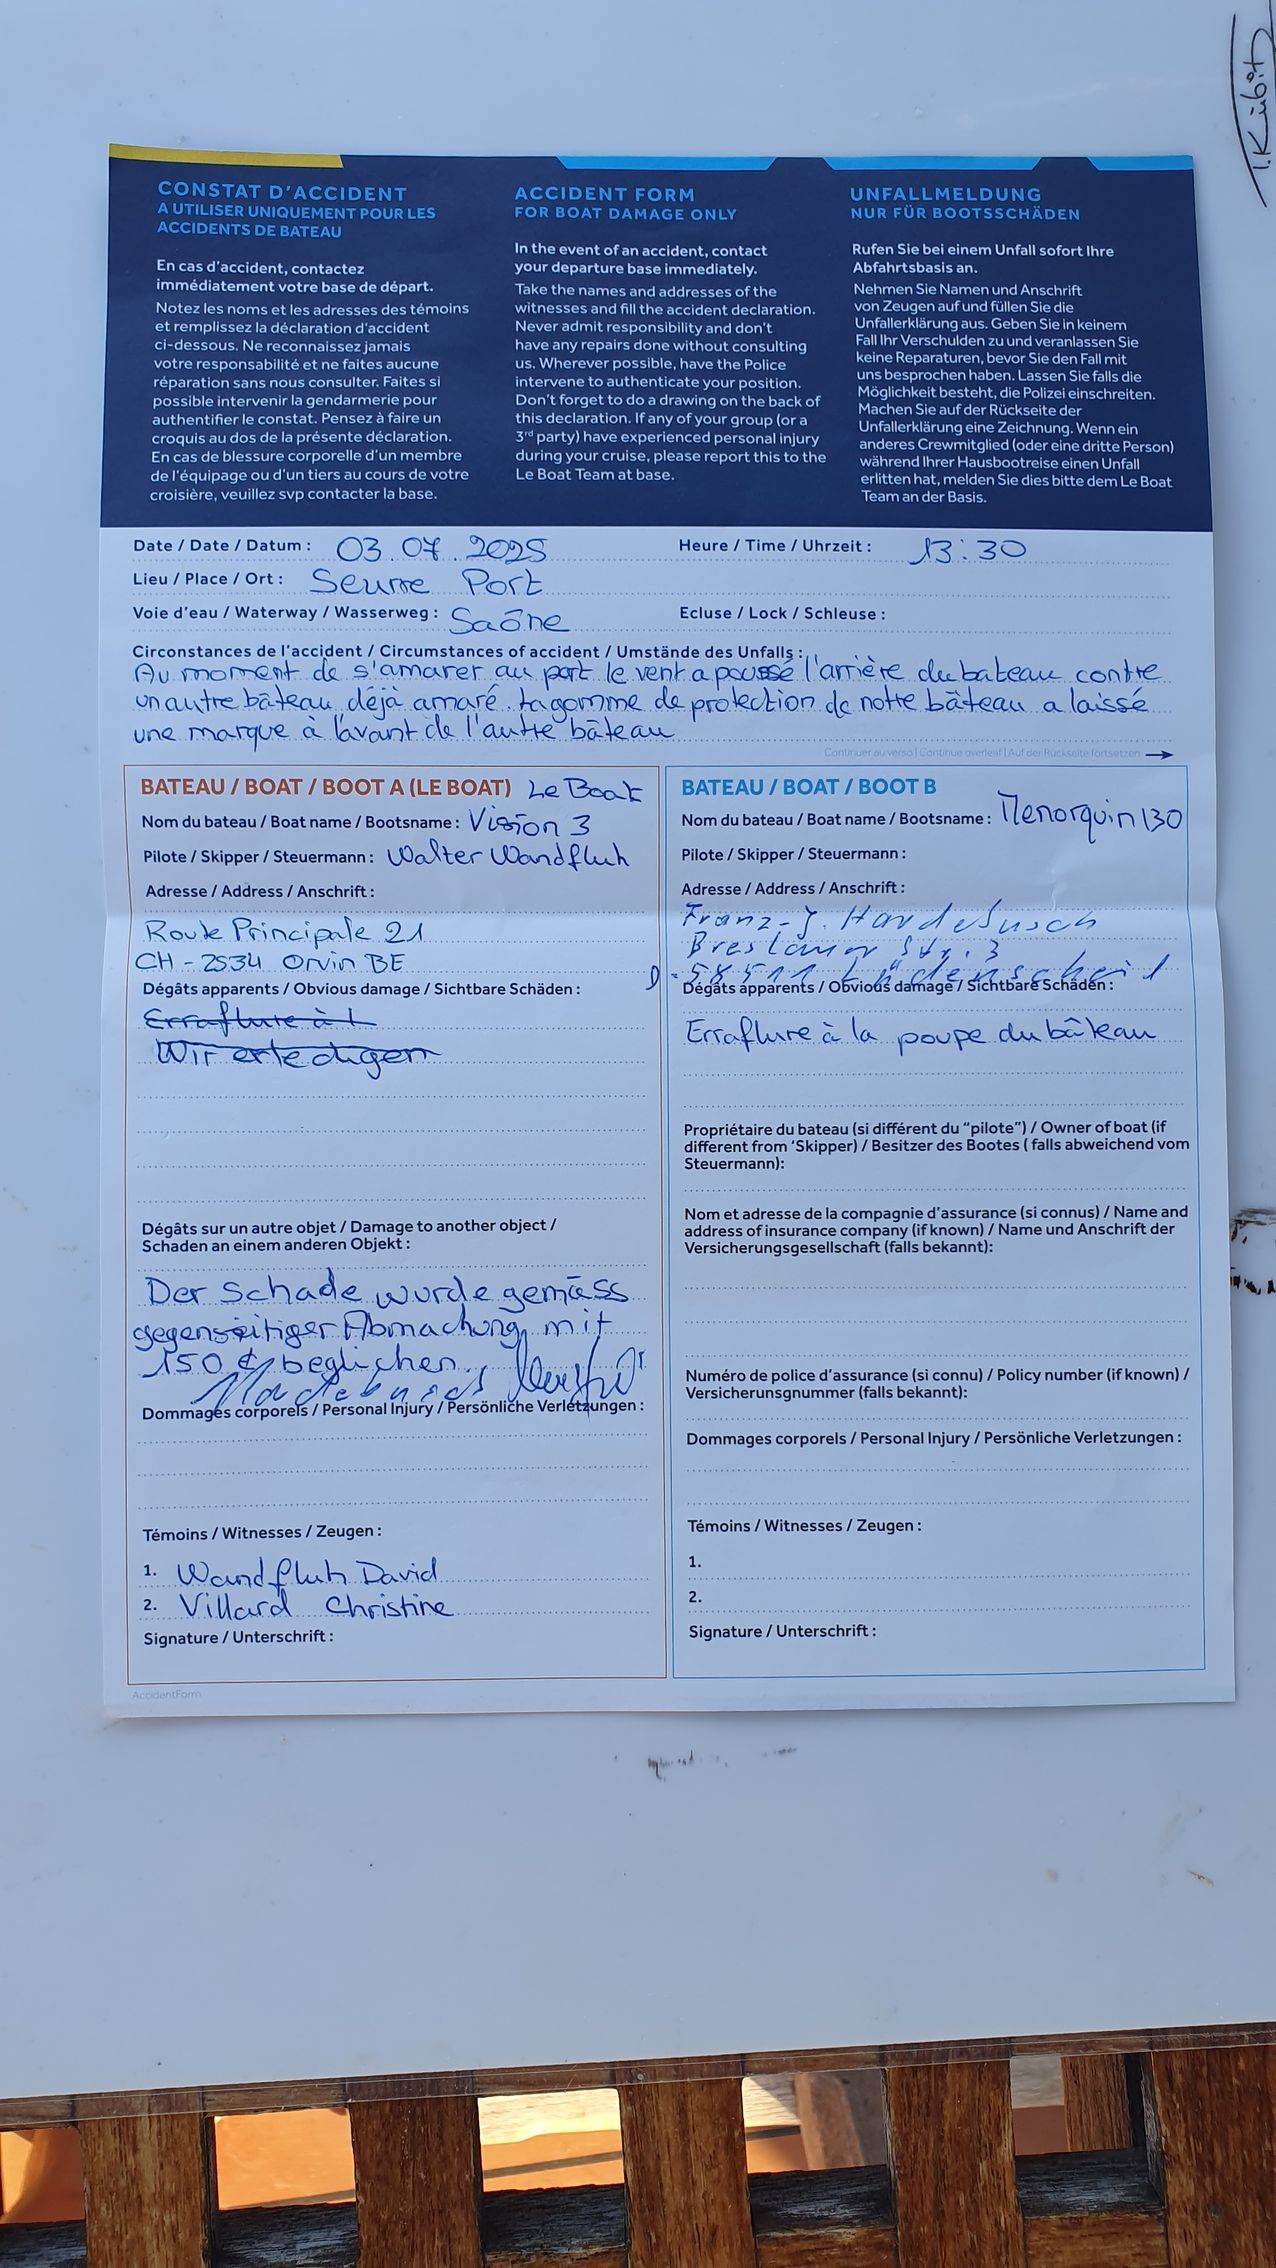 I. Kubit
CONSTAT D'ACCIDENT
A UTILISER UNIQUEMENT POUR LES
ACCIDENTS DE BATEAU
En cas d'accident, contactez
immédiatement votre base de départ.
Notez les noms et les adresses des témoins
et remplissez la déclaration d'accident
ci-dessous. Ne reconnaissez jamais
votre responsabilité et ne faites aucune
réparation sans nous consulter. Faites si
possible intervenir la gendarmerie pour
authentifier le constat. Pensez à faire un
croquis au dos de la présente déclaration.
En cas de blessure corporelle d'un membre
de l'équipage ou d'un tiers au cours de votre
croisière, veuillez svp contacter la base.
ACCIDENT FORM
FOR BOAT DAMAGE ONLY
In the event of an accident, contact
your departure base immediately.
Take the names and addresses of the
witnesses and fill the accident declaration.
Never admit responsibility and don't
have any repairs done without consulting
us. Wherever possible, have the Police
intervene to authenticate your position.
Don't forget to do a drawing on the back of
this declaration. If any of your group (or a
3rd party) have experienced personal injury
during your cruise, please report this to the
Le Boat Team at base.
UNFALLMELDUNG
NUR FÜR BOOTSSCHÄDEN
Rufen Sie bei einem Unfall sofort Ihre
Abfahrtsbasis an.
Nehmen Sie Namen und Anschrift
von Zeugen auf und füllen Sie die
Unfallerklärung aus. Geben Sie in keinem
Fall Ihr Verschulden zu und veranlassen Sie
keine Reparaturen, bevor Sie den Fall mit
uns besprochen haben. Lassen Sie falls die
Möglichkeit besteht, die Polizei einschreiten.
Machen Sie auf der Rückseite der
Unfallerklärung eine Zeichnung. Wenn ein
anderes Crewmitglied (oder eine dritte Person)
während Ihrer Hausbootreise einen Unfall
erlitten hat, melden Sie dies bitte dem Le Boat
Team an der Basis.
Date / Date / Datum : 03.07.2025 Heure / Time / Uhrzeit : 13:30
Lieu / Place / Ort : Seurre Port
Voie d'eau / Waterway / Wasserweg : Saône Ecluse / Lock / Schleuse :
Circonstances de l'accident / Circumstances of accident / Umstände des Unfalls :
Au moment de s'amarer au port le vent a poussé l'arrière du bateau contre
un autre bâteau déjà amaré. La gomme de protection de notre bâteau a laissé
une marque à l'avant de l'autre bâteau
Continuer au verso | Continue overleaf | Auf der Rückseite fortsetzen
BATEAU / BOAT / BOOT A (LE BOAT) Le Boat
Nom du bateau / Boat name / Bootsname : Vision 3
Pilote / Skipper / Steuermann : Walter Wandfluh
Adresse / Address / Anschrift :
Route Principale 21
CH - 2534 Orvin BE
Dégâts apparents / Obvious damage / Sichtbare Schäden :
Erraflure à l
Wir erledigen
Dégâts sur un autre objet / Damage to another object /
Schaden an einem anderen Objekt :
Der Schade wurde gemäss
gegenseitiger Abmachung mit
150 € beglichen.
Dommages corporels / Personal Injury / Persönliche Verletzungen :
Témoins / Witnesses / Zeugen :
1. Wandfluh David
2. Villard Christine
Signature / Unterschrift :
AccidentForm
BATEAU / BOAT / BOOT B
Nom du bateau / Boat name / Bootsname : Menorquin 130
Pilote / Skipper / Steuermann :
Adresse / Address / Anschrift :
Franz-J. Hardebusch
Breslauer Str. 3
D-58511 Lüdenscheid
Dégâts apparents / Obvious damage / Sichtbare Schäden :
Erraflure à la poupe du bâteau
Propriétaire du bateau (si différent du "pilote") / Owner of boat (if
different from 'Skipper) / Besitzer des Bootes ( falls abweichend vom
Steuermann):
Nom et adresse de la compagnie d'assurance (si connus) / Name and
address of insurance company (if known) / Name und Anschrift der
Versicherungsgesellschaft (falls bekannt):
Numéro de police d'assurance (si connu) / Policy number (if known) /
Versicherunsgnummer (falls bekannt):
Dommages corporels / Personal Injury / Persönliche Verletzungen :
Témoins / Witnesses / Zeugen :
1.
2.
Signature / Unterschrift :